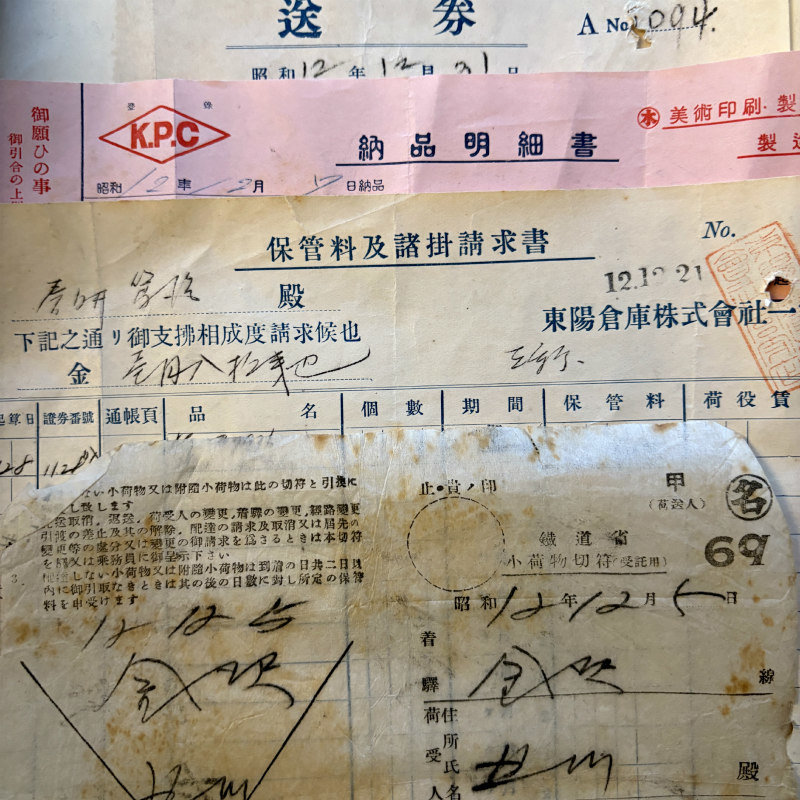 送券
A No. 1094.
昭和12年12月31日
御願ひの事
御引合の上
登録
K.P.C
納品明細書
㊍美術印刷・製
製造
昭和12年12月 7日納品
保管料及諸掛請求書
No.
12.12.21
殿
下記之通リ御支拂相成度請求候也
東陽倉庫株式會社一
金
起算日 證券番號 通帳頁 品名 個數 期間 保管料 荷役賃
ない小荷物又は附隨小荷物は此の切符と引換に
し致します
送取消、返送、荷受人の變更、着驛の變更、經路變更
引渡の差止及其の解除、配達の請求及取消又は届先の
變更等の處分又は變更の御請求を爲さるときは本切符
を驛又は乘務員に御呈示下さい
配達しない小荷物又は附隨小荷物は到着の日共二日以
内に御引取なきときは其の後の日數に對し所定の保管
料を申受けます
12 12 5
金沢
止・貴ノ印
甲
(荷送人)
名
69
鐵道省
小荷物切符(受託用)
昭和12年12月5日
着驛
金沢
線
荷受人
住所氏名
殿